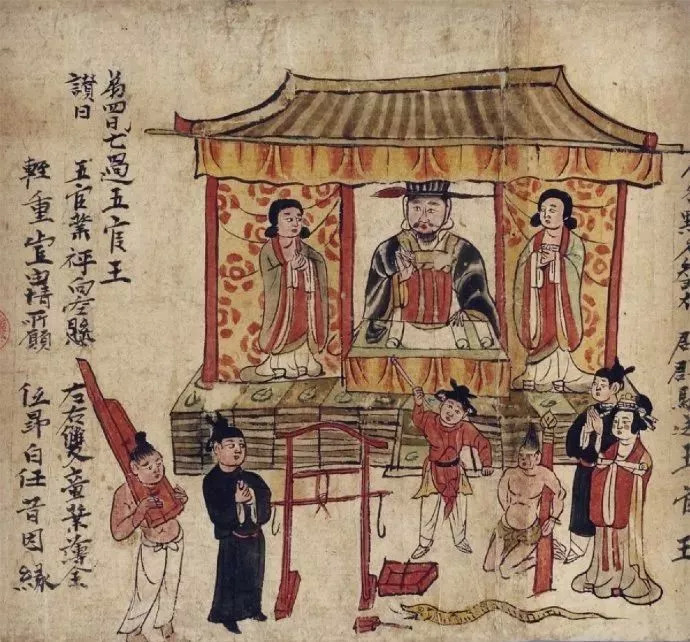 第四日七過五官王
讚曰 五官業秤向空懸 左右雙童業薄全
輕重豈由情所願 位昂自任昔因緣